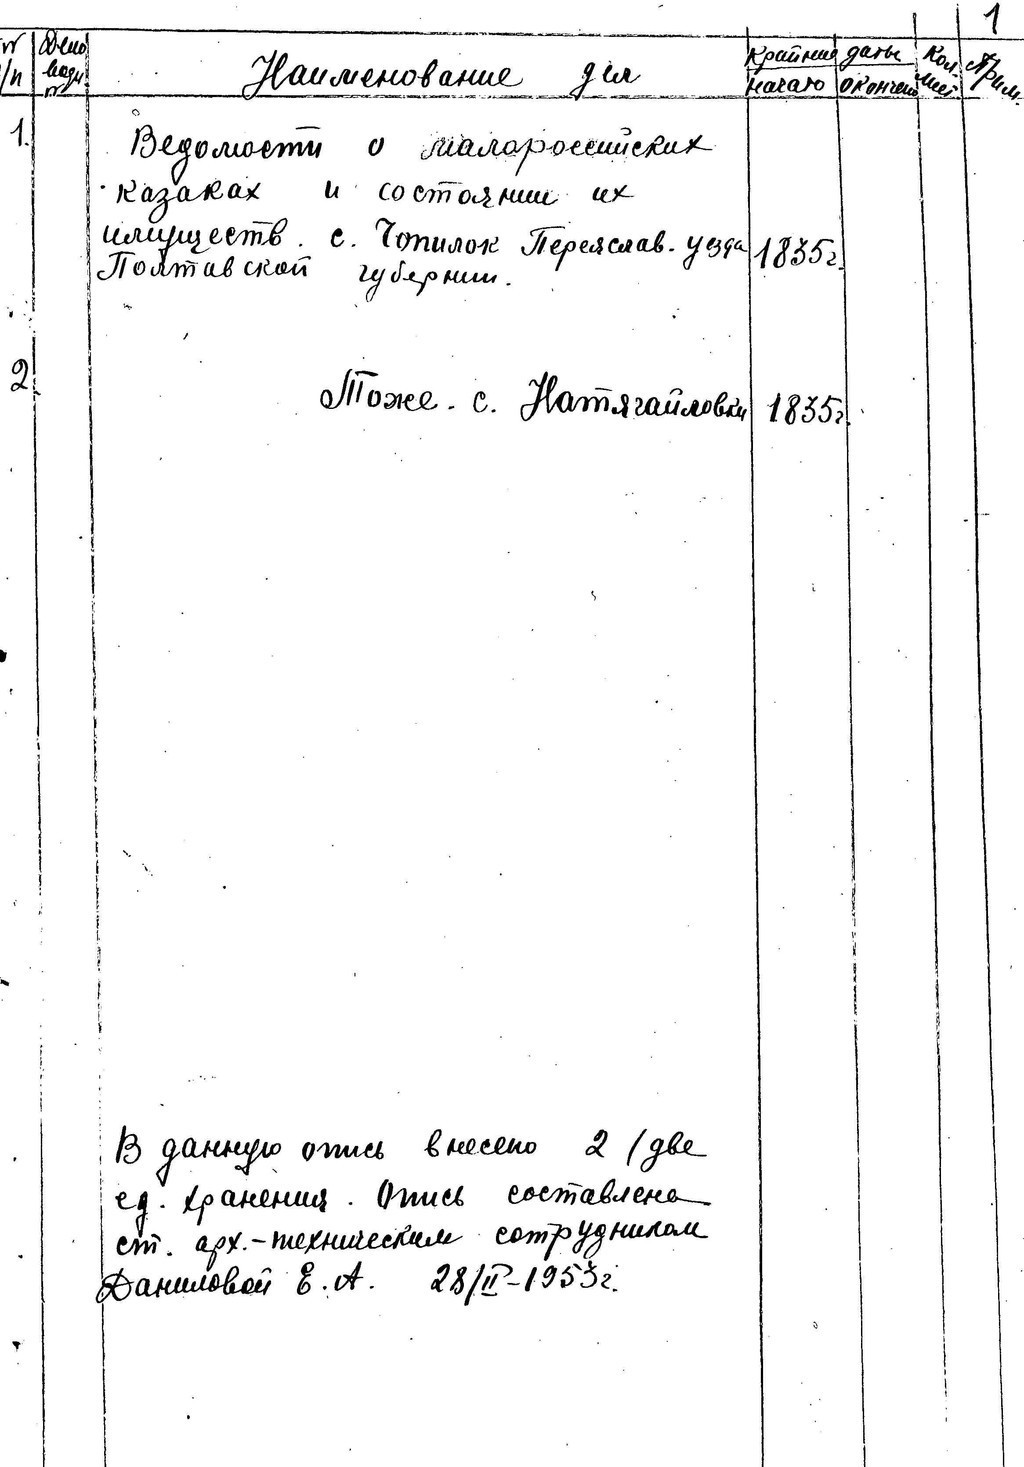 1
№ Дело Наименование дел Крайние даты Кол. Прим.
п/п водн начало окончен
1. Ведомости о малороссийских
казаках и состоянии их
имуществ. с. Чопилок Переяслав. уезда 1835г.
Полтавской губернии.
2. Тоже. с. Натягайловки 1835г.
В данную опись внесено 2 /две
ед. хранения. Опись составлена
ст. арх.-техническим сотрудником
Даниловой Е.А. 28/II-1953г.